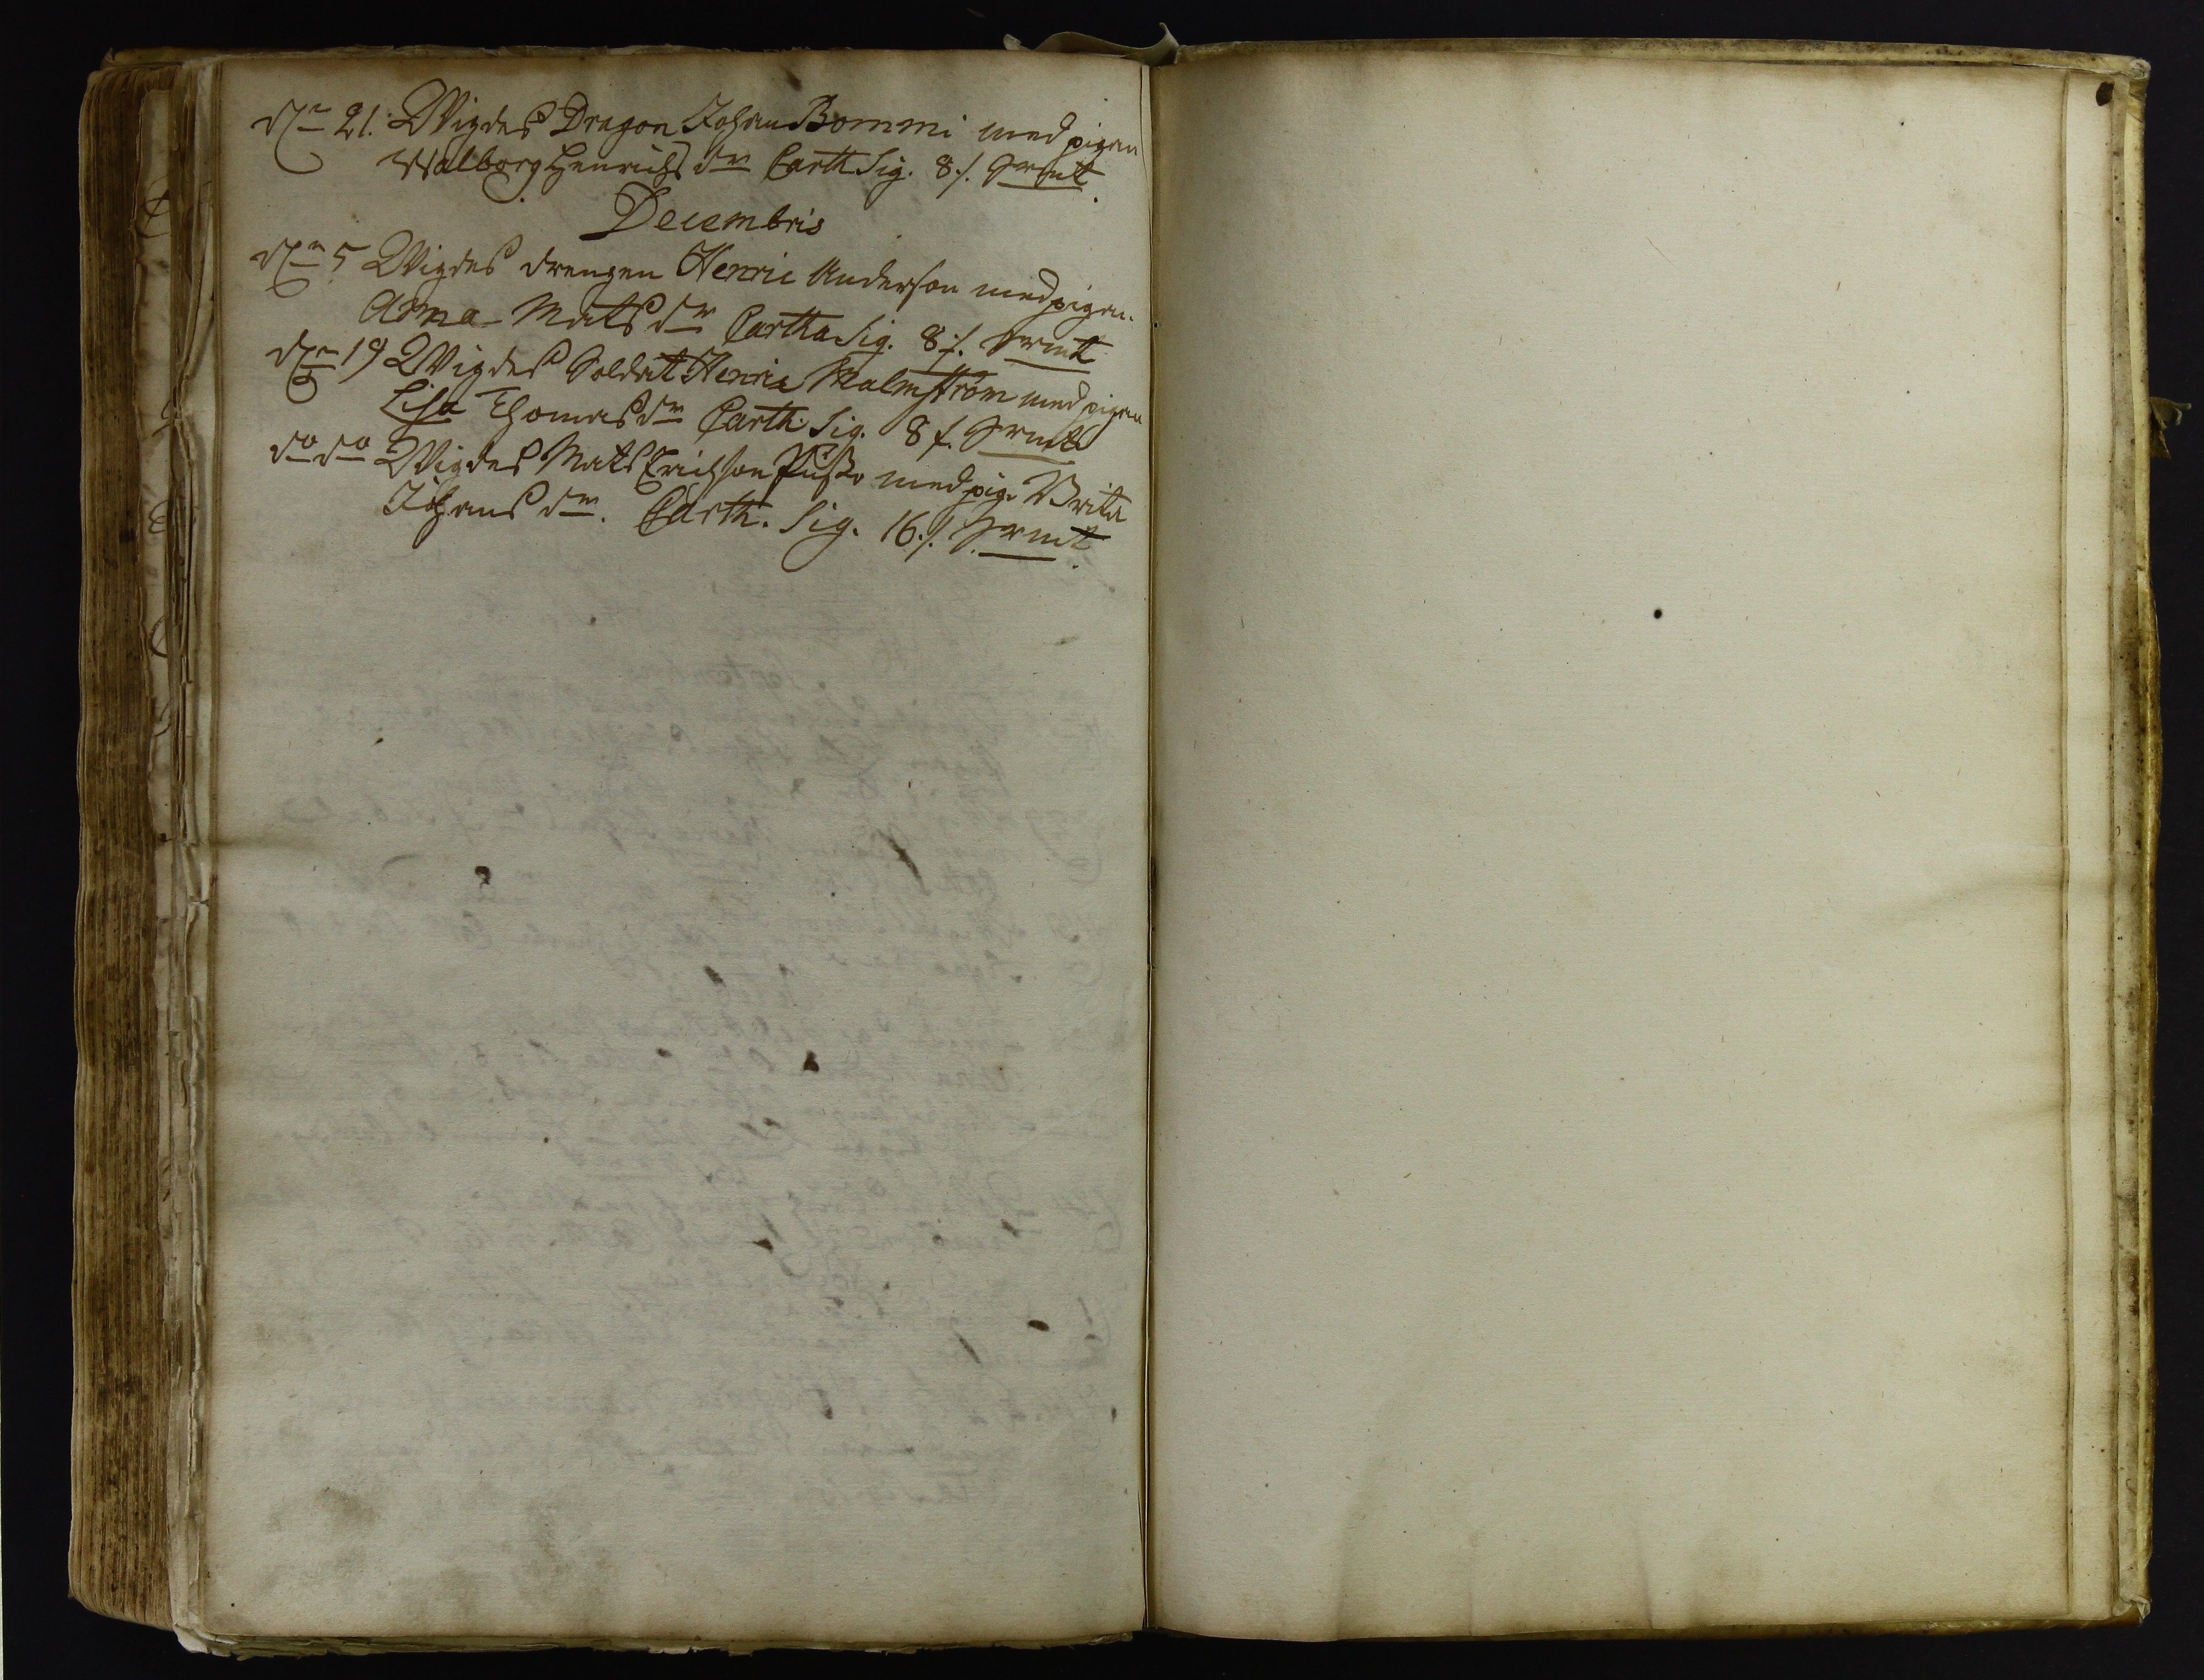 d. 21. Wigdes Dragon Johan Bommi med pigan
Walborg Henrichs dr Carth Sig. 8 /. Srmt.
Decembris
d. 5 Wigdes drengen Henric Anderson med pigan
Anna Mats dr Cartha Sig. 8 /. Srmt
d. 19 Wigdes Soldat Henric Malmström med pigan
Lisa Thomas dr Carth Sig. 8 /. Srmt
do do Wigdes Mats Erichson med pig. Brita
Johans dr. Carth. Sig. 16 /. Srmt.